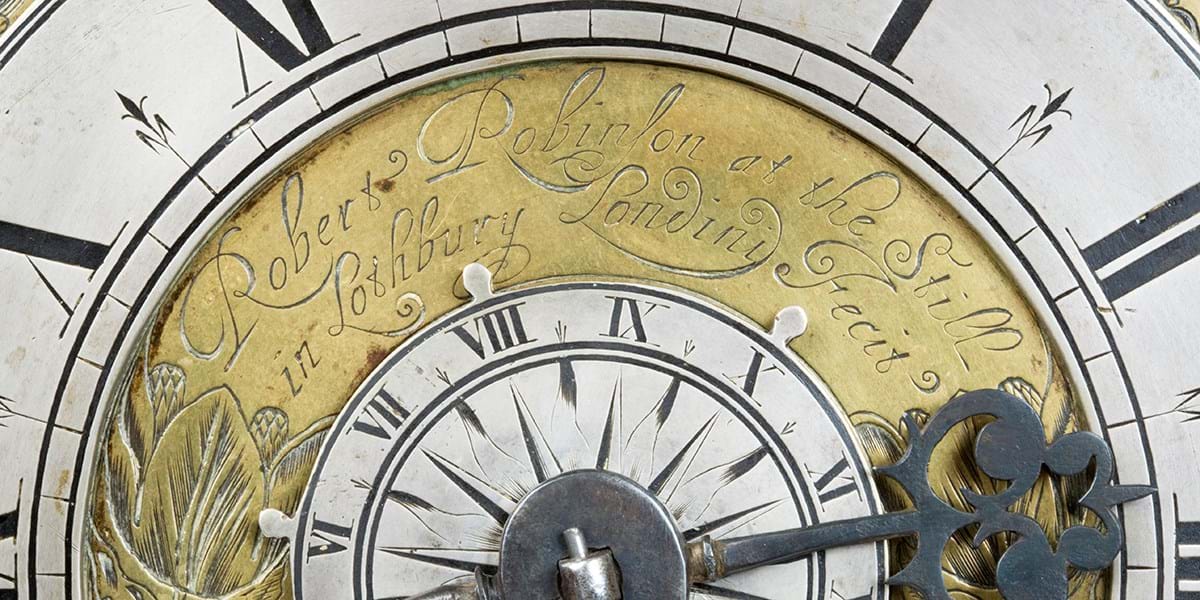 Robert Robinſon at the Still
in Lothbury Londini Fecit
VI VII VIII IX X XI